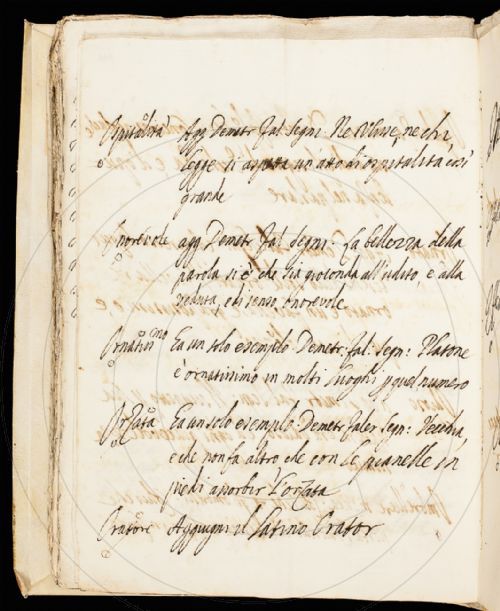 Ospitalità Agg Demetr. Fal. Segni. Ne Ulisse, ne chi
legge si aspetta un atto di ospitalità così
grande
Onorevole agg Demetr Fal. Segni. La bellezza della
parola si è che sia gioconda all'udito, e alla
veduta, e di senso, onorevole
Ornatissimo Ea un solo esemplo Demetr. fal. Segn: Platone
è ornatissimo in molti luoghi quel numero
Orzata Ea un solo esemplo. Demetr Faler Segn: Vecchia,
e che non fa altro che con le pianelle in
piedi assorbir l'orzata
Oratore Aggiugni il latino Orator